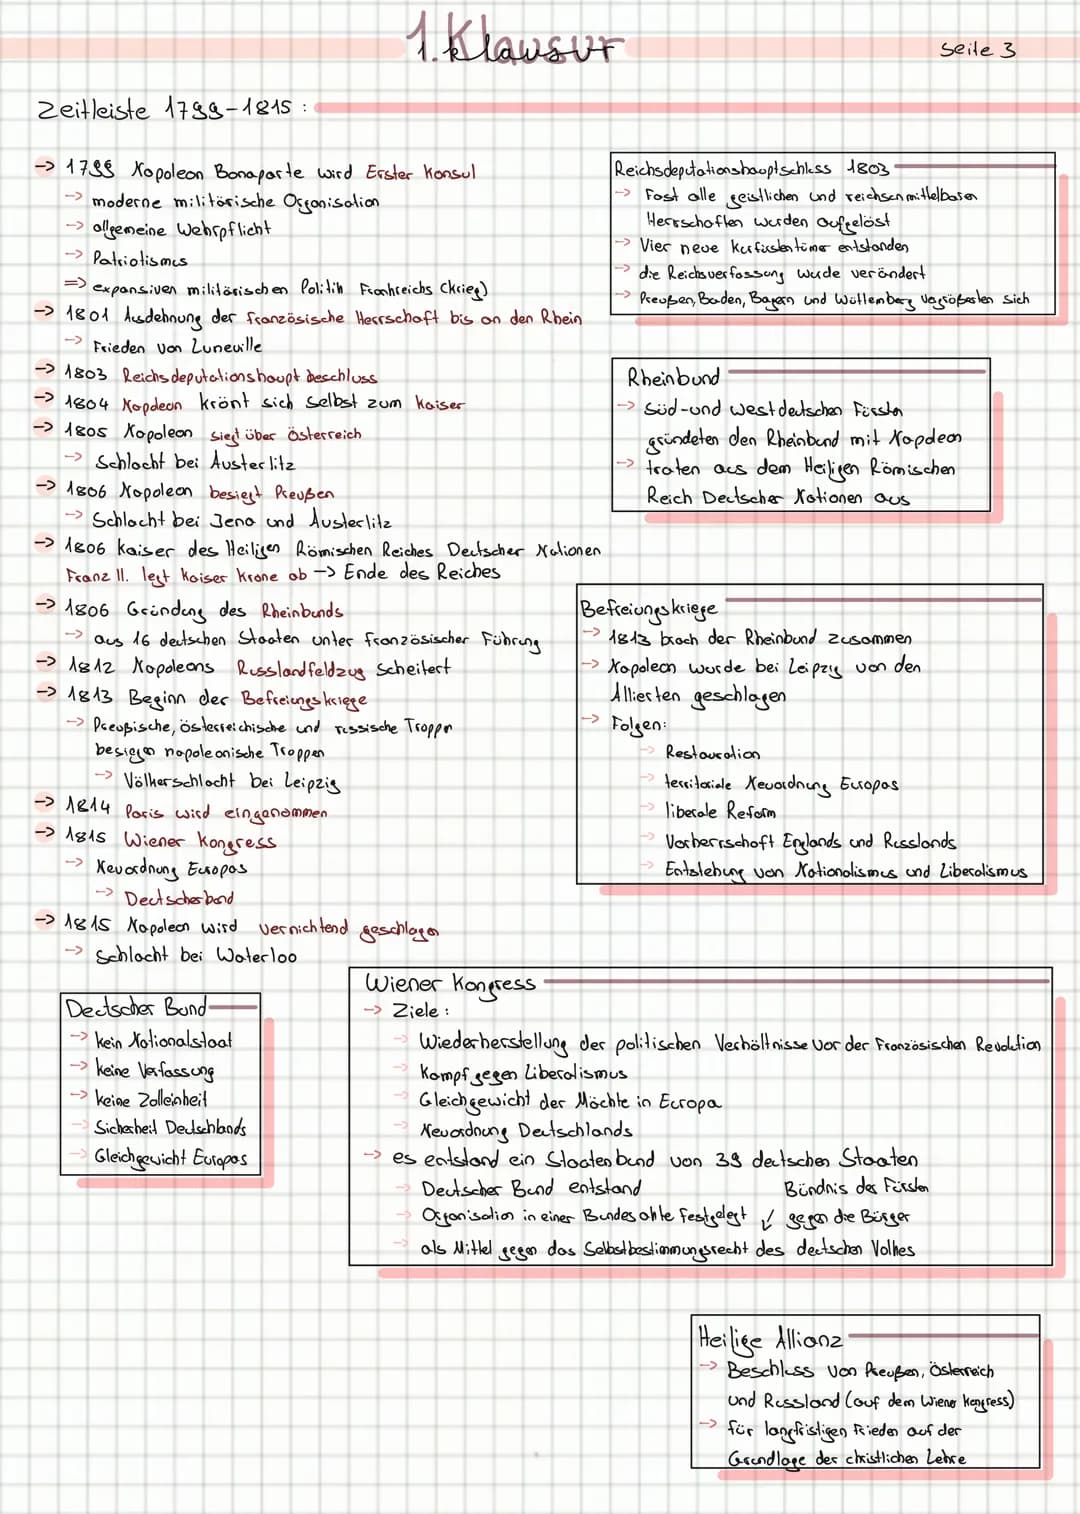 1. Klausur
1. Klausur
Seite 3
Zeitleiste 1799-1815:
-> 1799 Napoleon Bonaparte wird Erster Konsul
-> moderne militärische Organisation
-> allgemeine Wehrpflicht
-> Patriotismus
=> expansiven militärischen Politik Frankreichs (krieg)
-> 1801 Ausdehnung der französische Herrschaft bis an den Rhein
-> Frieden von Luneville
-> 1803 Reichsdeputationshaupt beschluss
-> 1804 Napoleon krönt sich selbst zum Kaiser
-> 1805 Napoleon siegt über Österreich
-> Schlacht bei Austerlitz
-> 1806 Napoleon besiegt Preußen
-> Schlacht bei Jena und Austerlitz
-> 1806 Kaiser des Heiligen Römischen Reiches Deutscher Nationen
Franz II. legt Kaiser Krone ab -> Ende des Reiches
-> 1806 Gründung des Rheinbunds
-> aus 16 deutschen Staaten unter französischer Führung
-> 1812 Napoleons Russlandfeldzug scheitert
-> 1813 Beginn der Befreiungskriege
-> Preußische, österreichische und russische Truppen
besiegen napoleonische Truppen
-> Völkerschlacht bei Leipzig
-> 1814 Paris wird eingenommen
-> 1815 Wiener Kongress
-> Neuordnung Europas
-> Deutscherbund
-> 1815 Napoleon wird vernichtend geschlagen
-> Schlacht bei Waterloo
Reichsdeputationshauptschluss 1803
-> Fast alle geistlichen und reichsunmittelbaren
Herrschaften wurden aufgelöst
-> Vier neue Kurfürstentümer entstanden
-> die Reichsverfassung wurde verändert
-> Preußen, Baden, Bayern und Württemberg vergrößerten sich
Rheinbund
-> Süd-und westdeutschen Fürsten
gründeten den Rheinbund mit Napoleon
-> traten aus dem Heiligen Römischen
Reich Deutscher Nationen aus
Befreiungskriege
-> 1813 brach der Rheinbund zusammen
-> Napoleon wurde bei Leipzig von den
Alliierten geschlagen
-> Folgen:
-> Restauration
-> territoriale Neuordnung Europas
-> liberale Reform
-> Vorherrschaft Englands und Russlands
-> Entstehung von Nationalismus und Liberalismus
Deutscher Bund
-> kein Nationalstaat
-> keine Verfassung
-> keine Zolleinheit
-> Sicherheit Deutschlands
-> Gleichgewicht Europas
Wiener Kongress
-> Ziele:
-> Wiederherstellung der politischen Verhältnisse vor der Französischen Revolution
-> Kampf gegen Liberalismus
-> Gleichgewicht der Mächte in Europa
-> Neuordnung Deutschlands
-> es entstand ein Staatenbund von 39 deutschen Staaten
-> Deutscher Bund entstand Bündnis der Fürsten
-> Organisation in einer Bundesakte festgelegt ↙ gegen die Bürger
-> als Mittel gegen das Selbstbestimmungsrecht des deutschen Volkes
Heilige Allianz
-> Beschluss von Preußen, Österreich
und Russland (auf dem Wiener Kongress)
-> für langfristigen Frieden auf der
Grundlage der christlichen Lehre